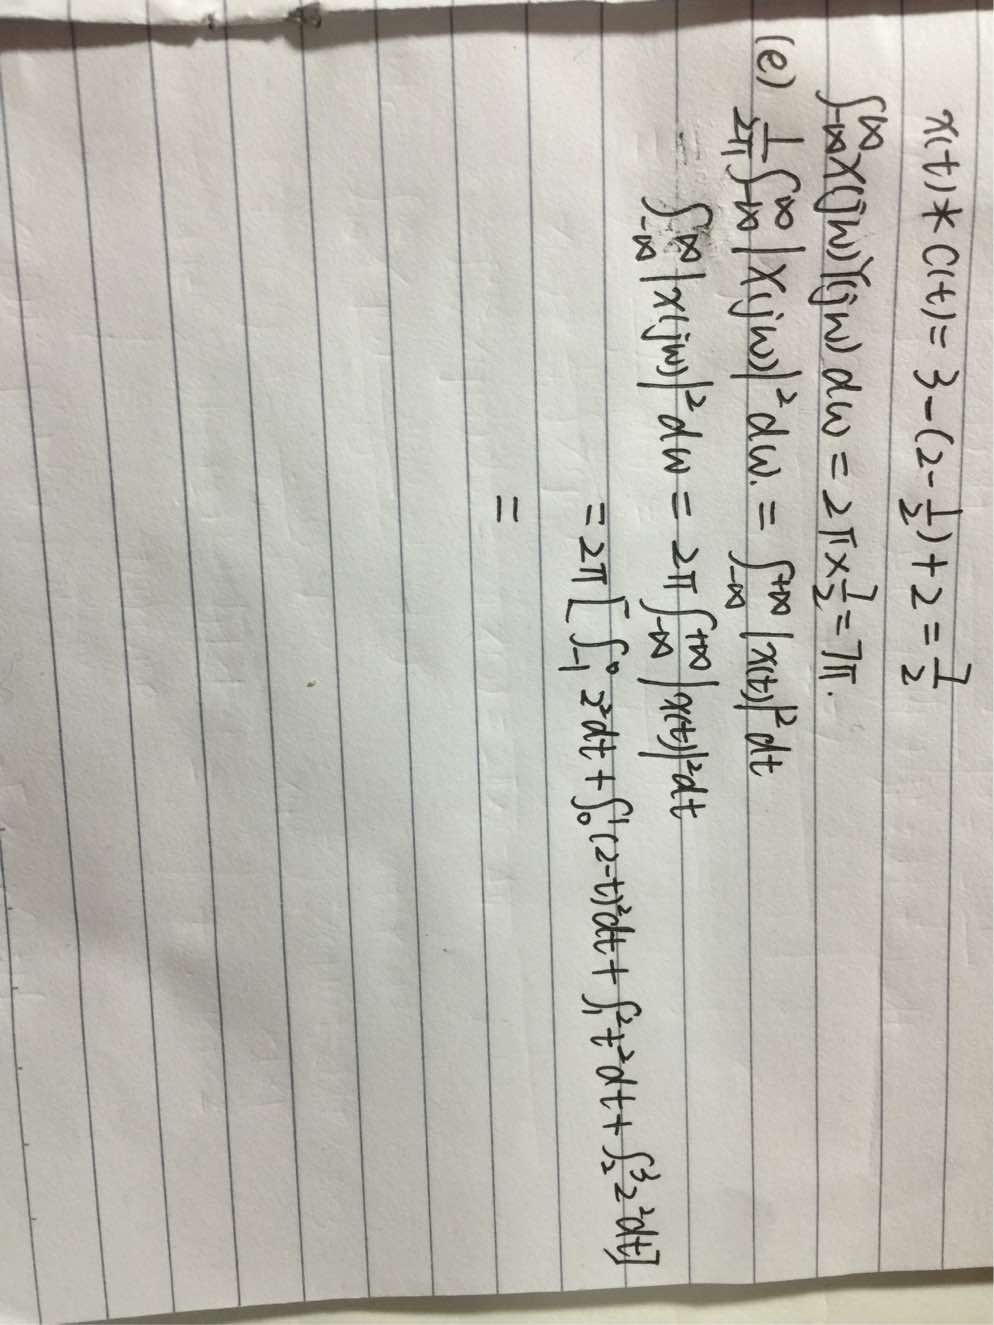 x(t) * C(t) = 3 - (2 - 1/2) + 2 = 7/2
∫_{-∞}^{∞} X(jω)Y(jω) dω = 2π × 7/2 = 7π.
(e) 1/2π ∫_{-∞}^{+∞} |X(jω)|² dω. = ∫_{-∞}^{+∞} |x(t)|² dt
∫_{-∞}^{∞} |x(jω)|² dω = 2π ∫_{-∞}^{+∞} |x(t)|² dt
= 2π [∫_{-1}^{0} 2² dt + ∫_{0}^{1} (2-t)² dt + ∫_{1}^{2} t² dt + ∫_{2}^{3} 2² dt]
=